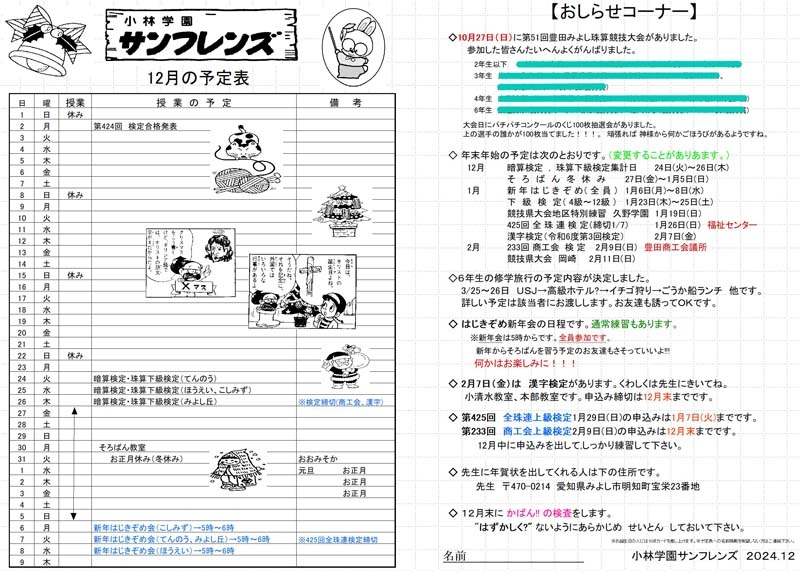 小林学園
サンフレンズ
12月の予定表
日 曜 授業 授業の予定 備考
1 日 休み
2 月 第424回 検定合格発表
3 火
4 水
5 木
6 金
7 土
8 日 休み
9 月
10 火
11 水
12 木
13 金
14 土
15 日 休み
16 月
17 火
18 水
19 木
20 金
21 土
22 日 休み
23 月
24 火 暗算検定・珠算下級検定(てんのう)
25 水 暗算検定・珠算下級検定(ほうえい、こしみず)
26 木 暗算検定・珠算下級検定(みよし丘) ※検定締切(商工会、漢字)
27 金
28 土
29 日
30 月 そろばん教室
31 火 お正月休み(冬休み) おおみそか
1 水 元旦 お正月
2 木 お正月
3 金 お正月
4 土
5 日
6 月 新年はじきぞめ会(こしみず)→5時~6時
7 火 新年はじきぞめ会(てんのう、みよし丘)→5時~6時 ※425回全珠連検定締切
8 水 新年はじきぞめ会(ほうえい)→5時~6時
9 木
【おしらせコーナー】
◇10月27日(日)に第51回豊田みよし珠算競技大会がありました。
参加した皆さんたいへんよくがんばりました。
2年生以下
3年生
4年生
6年生
大会日にパチパチコンクールのくじ100枚抽選会がありました。
上の選手の誰かが100枚当てました!!!。 頑張れば 神様から何かごほうびがあるようですね。
◇ 年末年始の予定は次のとおりです。(変更することがありあます。)
12月 暗算検定 、珠算下級検定集計日 24日(火)~26日(木)
そろばん冬休み 27日(金)~1月5日(日)
1月 新年はじきぞめ(全員) 1月6日(月)~8日(水)
下級検定(4級~12級) 1月23日(木)~25日(土)
競技県大会地区特別練習 久野学園 1月19日(日)
425回全珠連検定(締切1/7) 1月26日(日) 福祉センター
漢字検定(令和6度第3回検定) 2月7日(金)
2月 233回 商工会検定 2月9日(日) 豊田商工会議所
競技県大会 岡崎 2月11日(日)
◇6年生の修学旅行の予定内容が決定しました。
3/25~26日 USJ→高級ホテル?→イチゴ狩り→ごうか船ランチ 他です。
詳しい予定は該当者にお渡しします。お友達も誘ってOKです。
◇ はじきぞめ新年会の日程です。通常練習もあります。
※新年会は5時からです。全員参加です。
新年からそろばんを習う予定のお友達もさそっていいよ!!!
何かはお楽しみに!!!
◇ 2月7日(金)は 漢字検定があります。くわしくは先生にきいてね。
小清水教室、本部教室です。申込み締切は12月末までです。
◇ 第425回 全珠連上級検定1月29日(日)の申込みは1月7日(火)までです。
第233回 商工会上級検定2月9日(日)の申込みは12月末までです。
12月中に申込みを出して、しっかり練習して下さい。
◇ 先生に年賀状を出してくれる人は下の住所です。
先生 〒470-0214 愛知県みよし市明知町宝栄23番地
◇ 12月末に かばん!! の検査をします。
"はずかしく?" ないようにあらかじめ せいとん しておいて下さい。
名前
小林学園サンフレンズ 2024.12